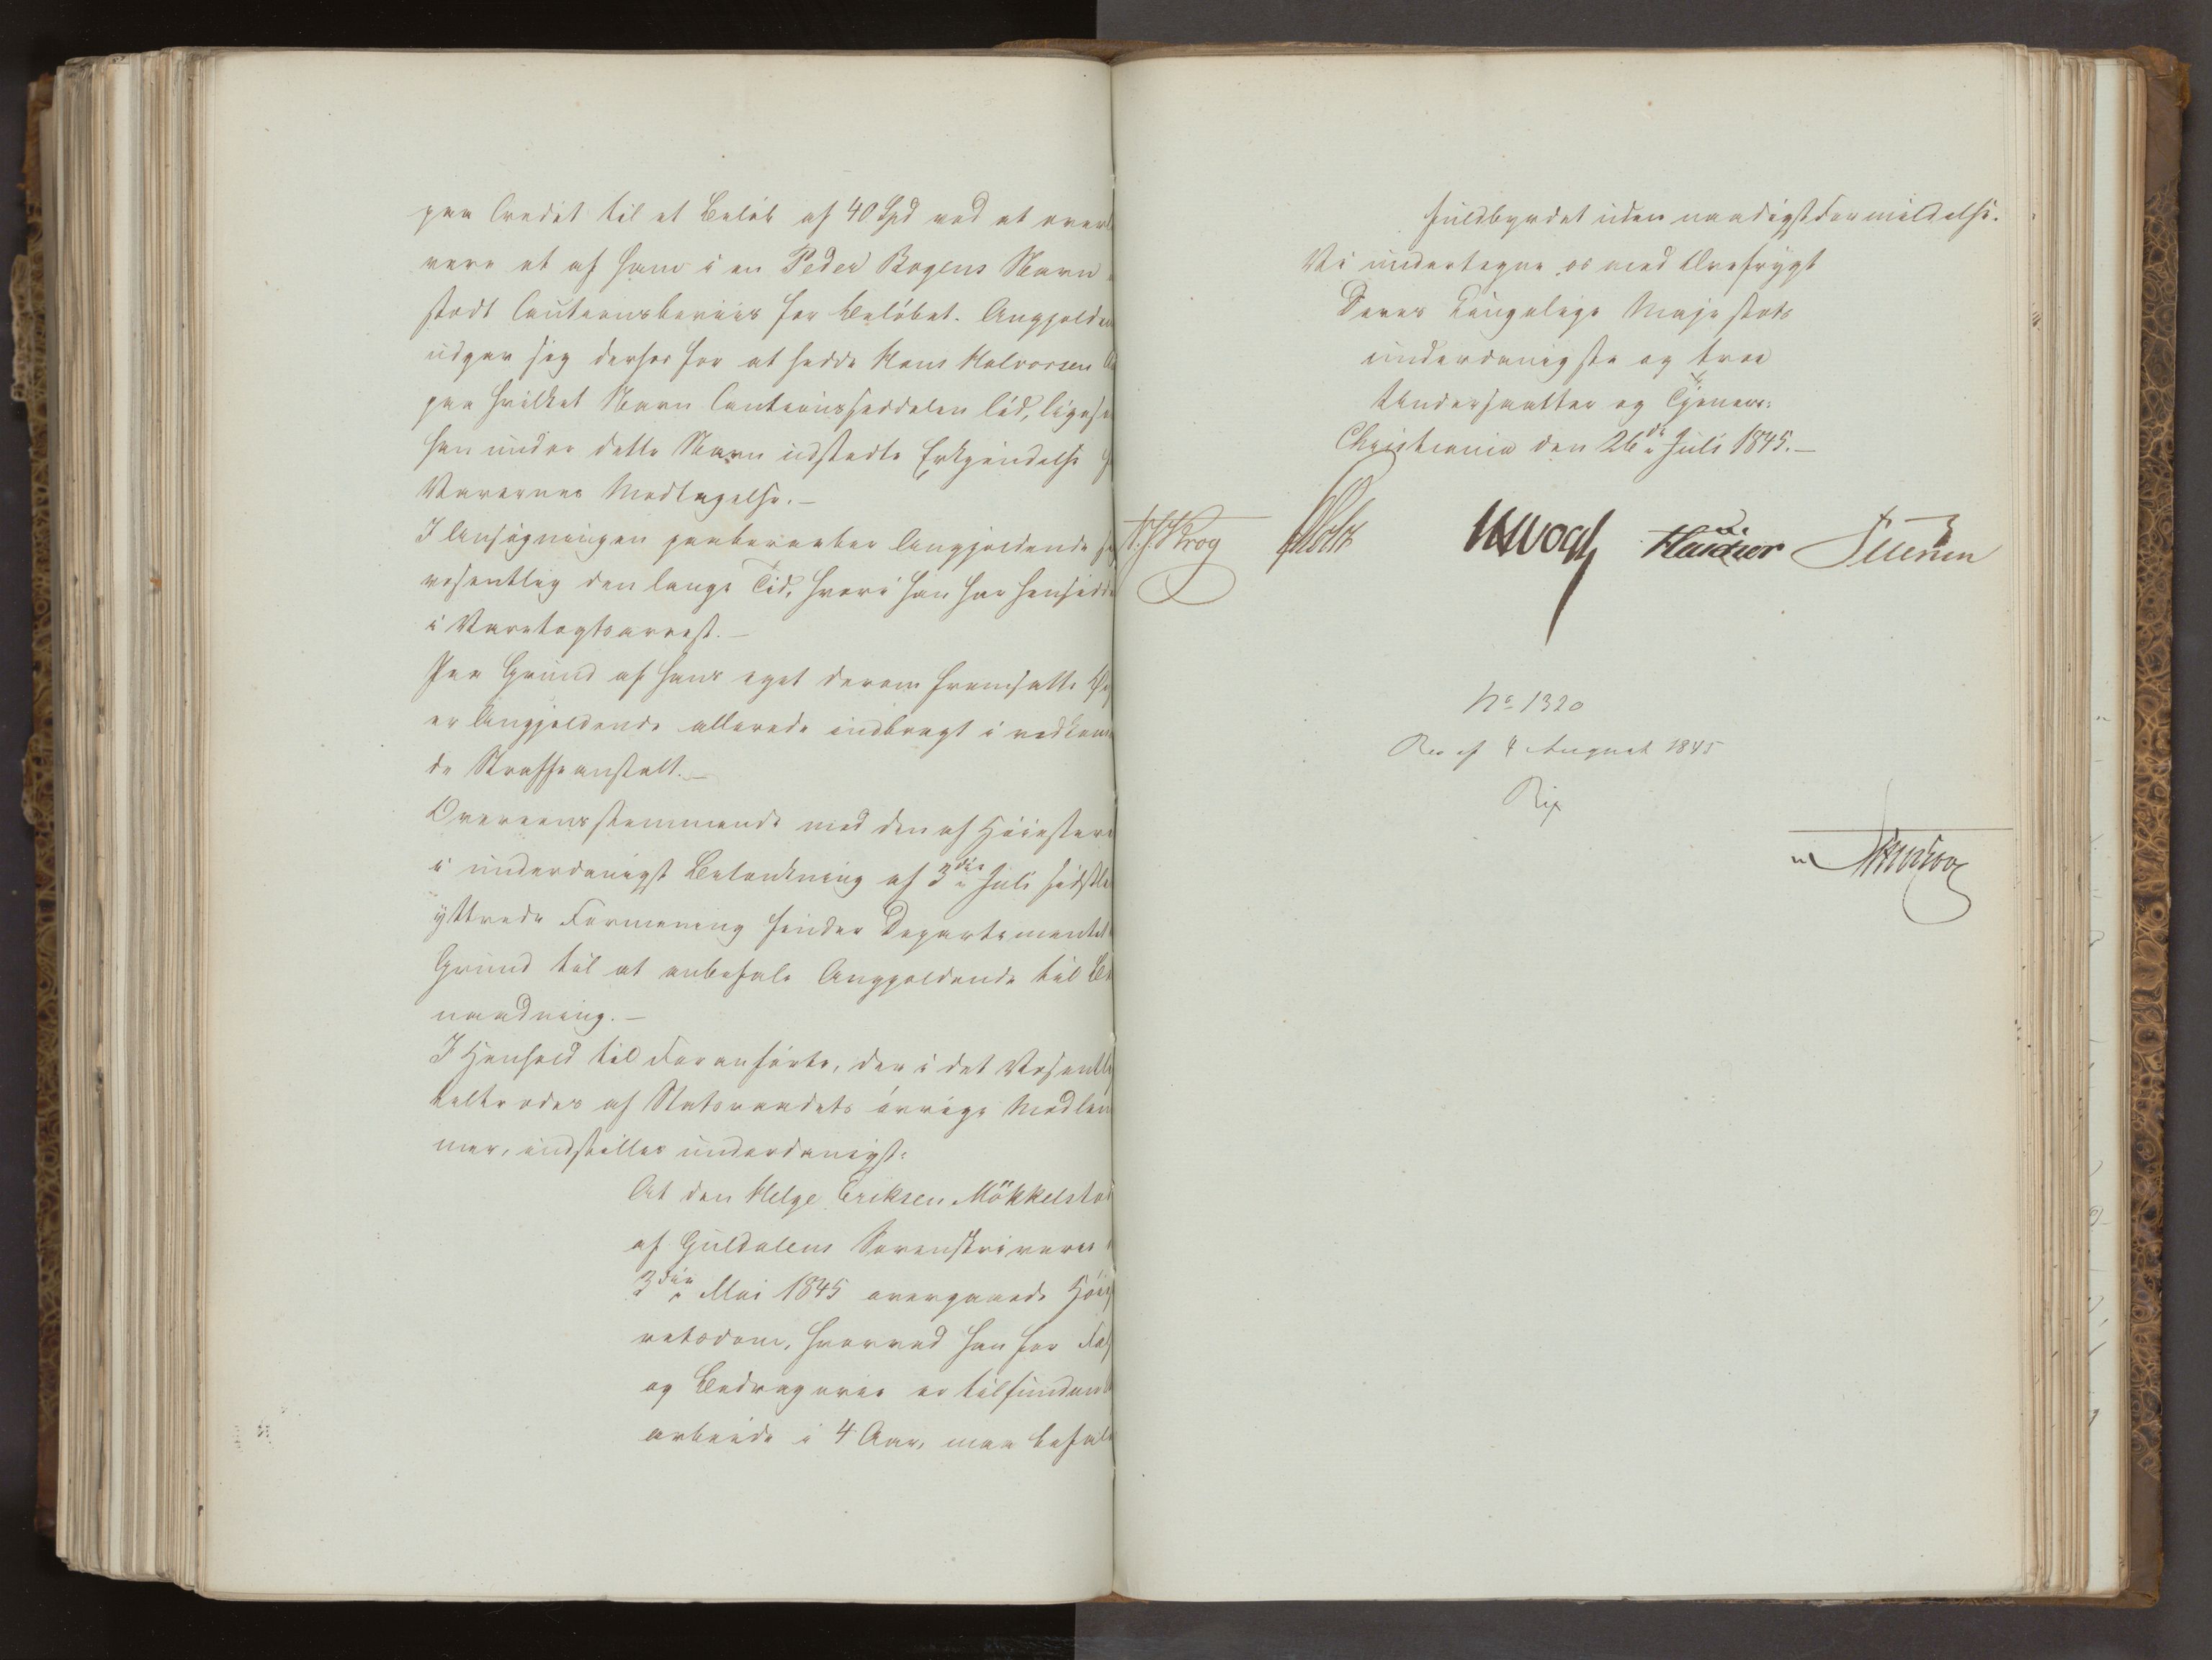 paa Credit til et Beløb af 40 Spd ved at over
vere et af ham i en Peder Bogens Navn
stedt Cautionsbeviis for Beløbet. Angjelden
udgav sig derhos for at hedde Hans Halvorsen
paa hvilket Navn Cautionsseddelen lød, ligesa
han under dette Navn udstedte Erkjendelse
Varernes Modtagelse.—
I Ansøgningen paaberaaber Angjeldende
væsentlig den lange Tid, hvori han har hensidde
i Varetægtsarrest.—
Paa Grund af hans eget derom fremsatte
er Angjeldende allerede indbragt i vedkom
de Straffeanstalt.—
Overeensstemmende med den af Høiestere
i underdanigst Betænkning af 3die Juli sidstle
yttrede Formening finder Departementet
Grund til at anbefale Angjeldende til Be
naadning.—
I Henhold til Foranførte, der i det Væsentli
tiltrædes af Statsraadets øvrige Medlem
mer, indstilles underdanigst:
At den Helge Eriksen Mökkelstad
af Guldalens Sorenskriverie
3die Mai 1845 overgaaede Høieste
retsdom, hvorved han for Fals
og Bedragerie er tilfunden
arbeide i 4 Aar, maa befale
fuldbyrdet uden naadigst Formildelse.
Vi undertegne os med Ærefrygt
Deres Kongelige Majestæts
underdanigste og troe
Undersaatter og Tjenere:
Christiania den 26de Juli 1845.—
Krog Holst Vogt
No 1320
Res af 4 August 1845